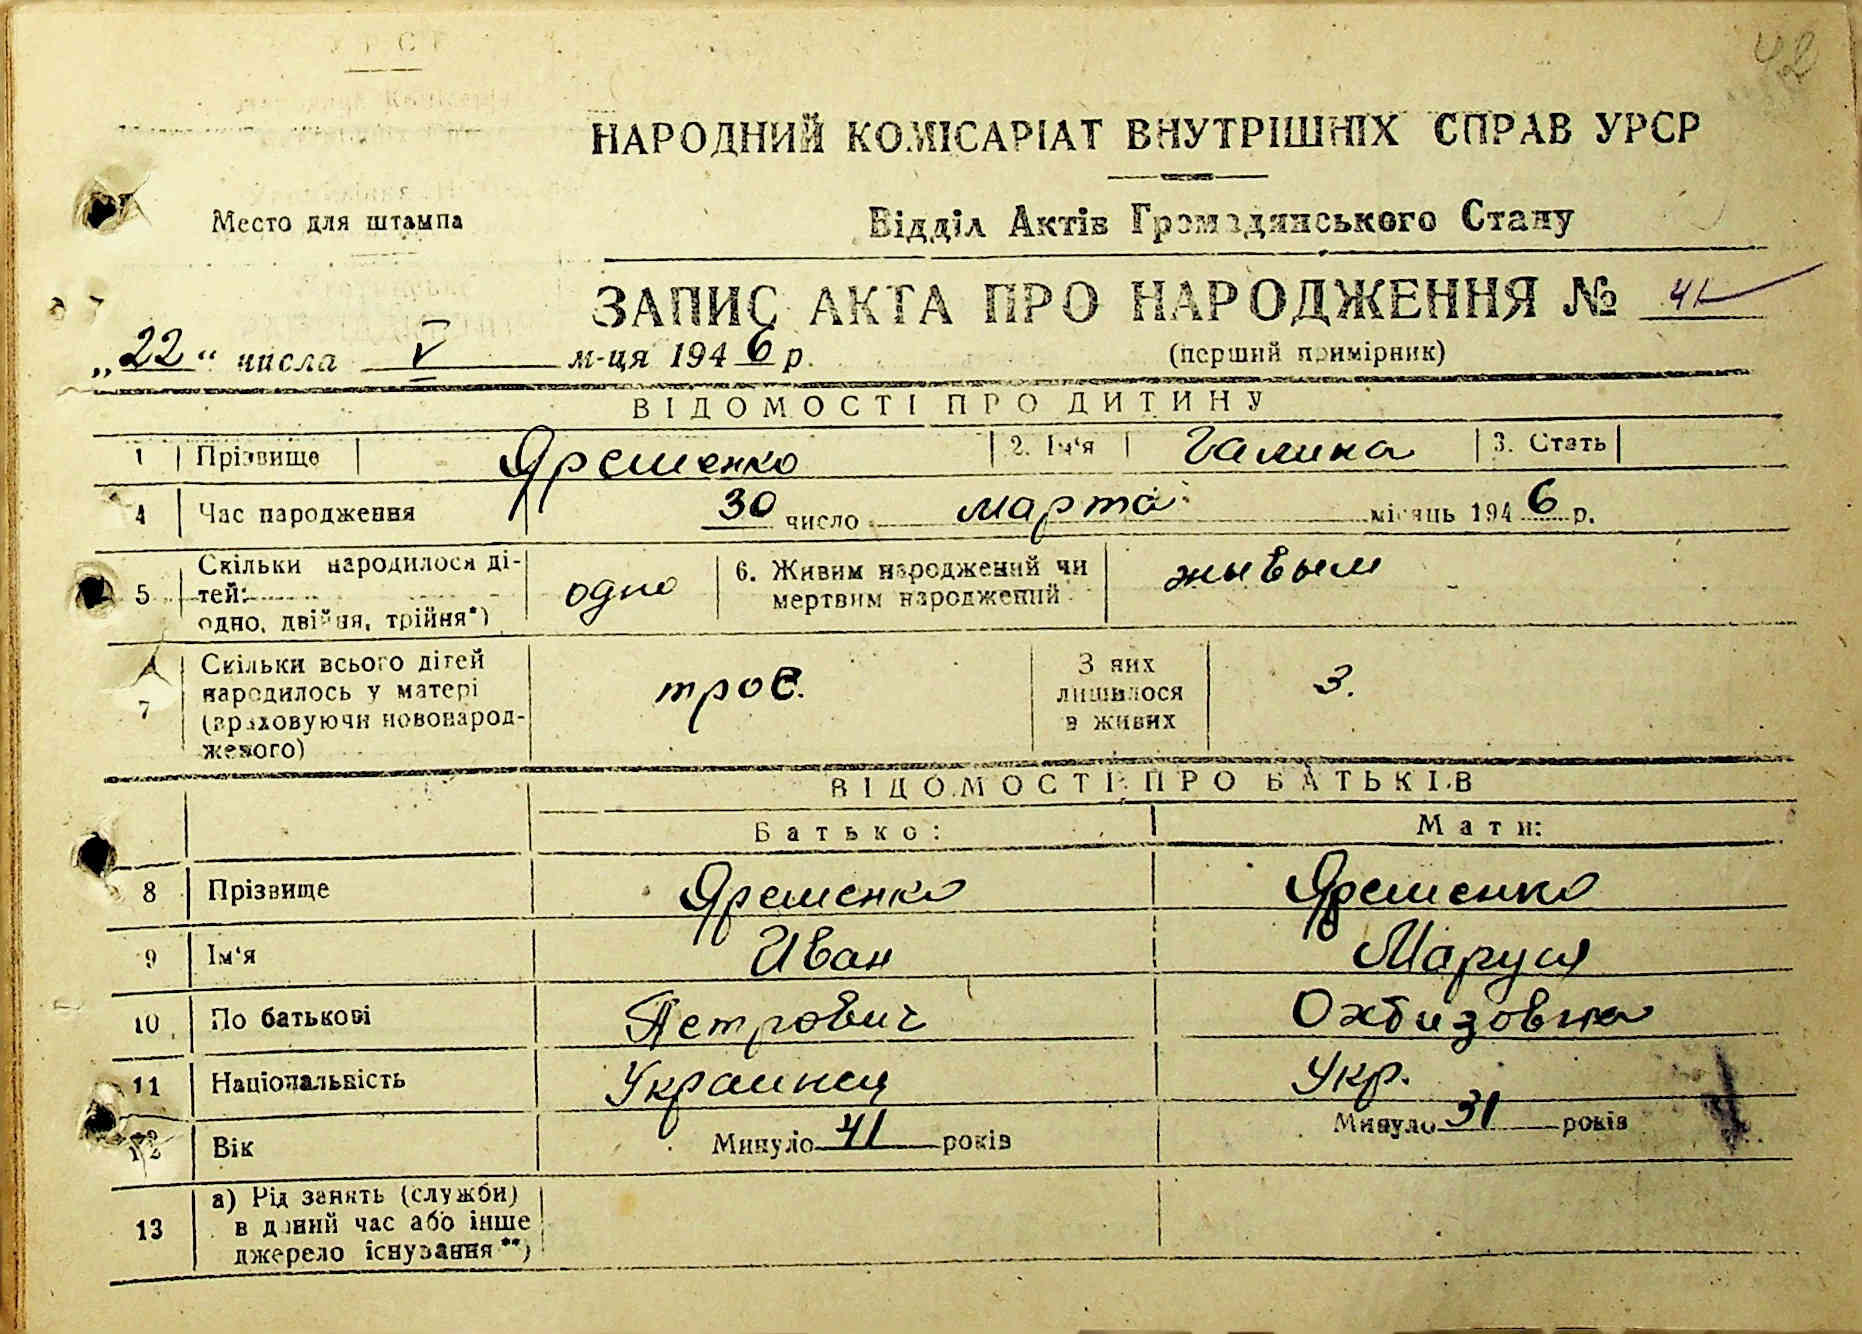 42
НАРОДНИЙ КОМІСАРІАТ ВНУТРІШНІХ СПРАВ УРСР
Место для штампа
Відділ Актів Громадянського Стану
ЗАПИС АКТА ПРО НАРОДЖЕННЯ № 41
„22“ числа V м-ця 1946 р.
(перший примірник)
ВІДОМОСТІ ПРО ДИТИНУ
1 Прізвище Ярешенко 2. Ім‘я Галина 3. Стать
4 Час народження 30 число марта місяць 1946 р.
5 Скільки народилося ді-
тей:
одно, двійня, трійня*)
одно
6. Живим народжений чи
мертвим народжений
живым
7 Скільки всього дітей
народилось у матері
(враховуючи новонарод-
женого)
троє.
З них
лишилося
в живих
3.
ВІДОМОСТІ ПРО БАТЬКІВ
Батько: Мати:
8 Прізвище Ярешенко Ярешенко
9 Ім‘я Иван Маруся
10 По батькові Петрович
11 Національність Украинец Укр.
12 Вік Минуло 41 років Минуло 31 років
13 а) Рід занять (служби)
в даний час або інше
джерело існування**)